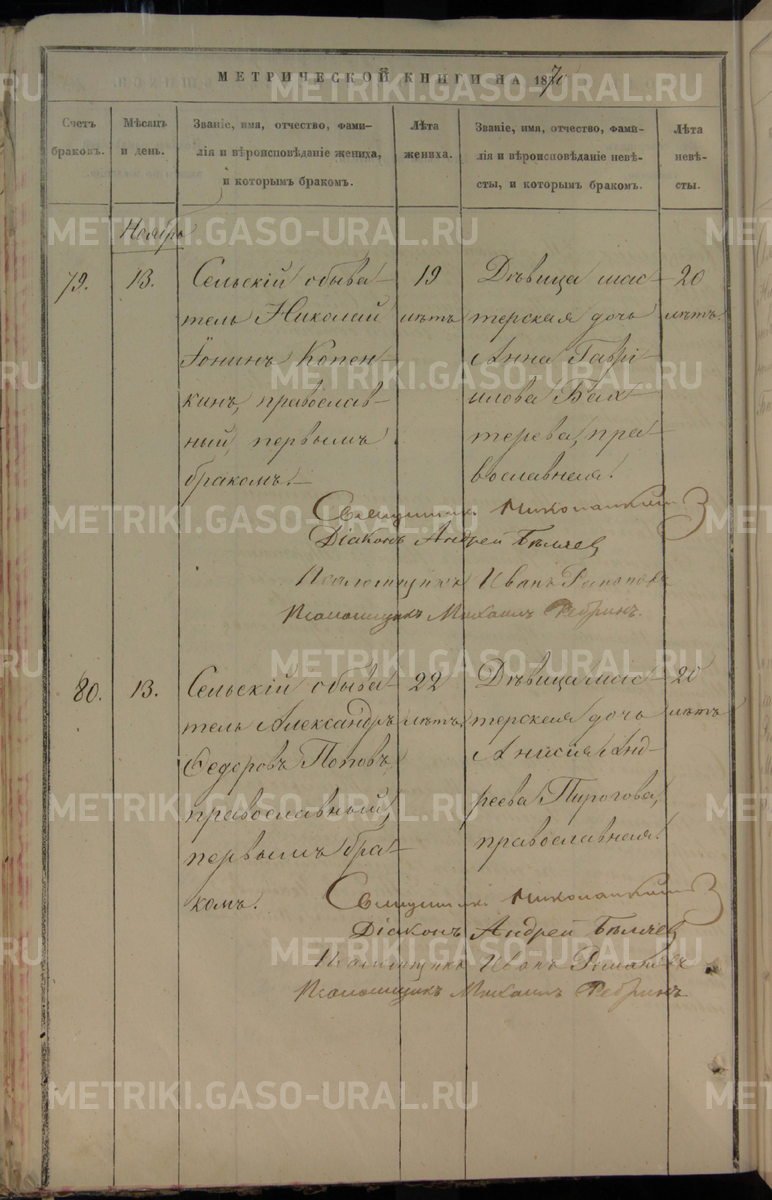 МЕТРИЧЕСКОЙ КНИГИ НА 1870
Счетъ браковъ.
Мѣсяцъ и день.
Званіе, имя, отчество, фами-
лія и вѣроисповѣданіе жениха,
и которымъ бракомъ.
Лѣта жениха.
Званіе, имя, отчество, фами-
лія и вѣроисповѣданіе невѣ-
сты, и которымъ бракомъ.
Лѣта невѣ-
сты.
Ноябрь
79.
13.
Сельскій обыва-
тель Николай
Іонинъ Копен-
кинъ, православ-
ный, первымъ
бракомъ.
19
лѣтъ
Дѣвица мас-
терская дочь
Анна Гаврі-
илова Бах-
терева, пра-
вославная.
20
лѣтъ.
Священникъ
Діаконъ Андрей Бѣляев
Псаломщикъ Иванъ
Псаломщикъ Михаилъ Ребринъ.
80.
13.
Сельскій обыва-
тель Александръ
Ѳедоровъ Поповъ,
православный,
первымъ бра-
комъ.
22
лѣтъ
Дѣвица мас-
терская дочь
Анисія Анд-
реева Пирогова,
православная.
20
лѣтъ
Священникъ
Діаконъ Андрей Бѣляев
Псаломщикъ Иванъ
Псаломщикъ Михаилъ Ребринъ
METRIKI.GASO-URAL.RU